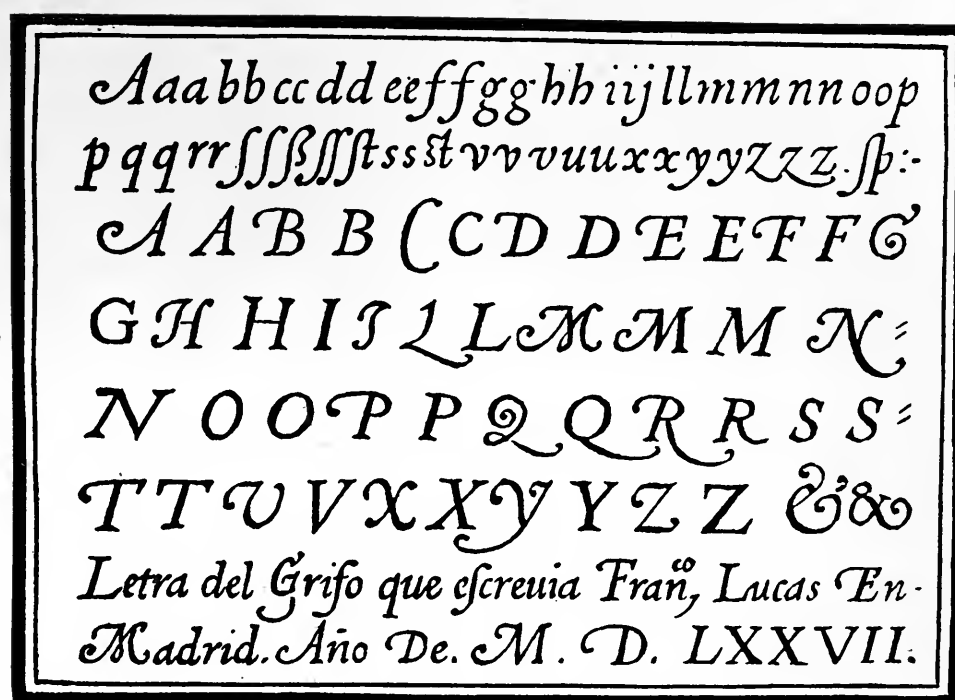 Aaabbccddeeffgghhiijllmmnnoop
pqqrrſſſßſſſtssstvvvuuxxyyzzz.ſp:-
A A B B C C D D E E F F G
G H H I I L L M M M N
N O O P P Q Q R R S S
T T U V X X Y Y Z Z & &
Letra del Grifo que eſcreuia Fran,co Lucas En-
Madrid. Año De. M. D. LXXVII.